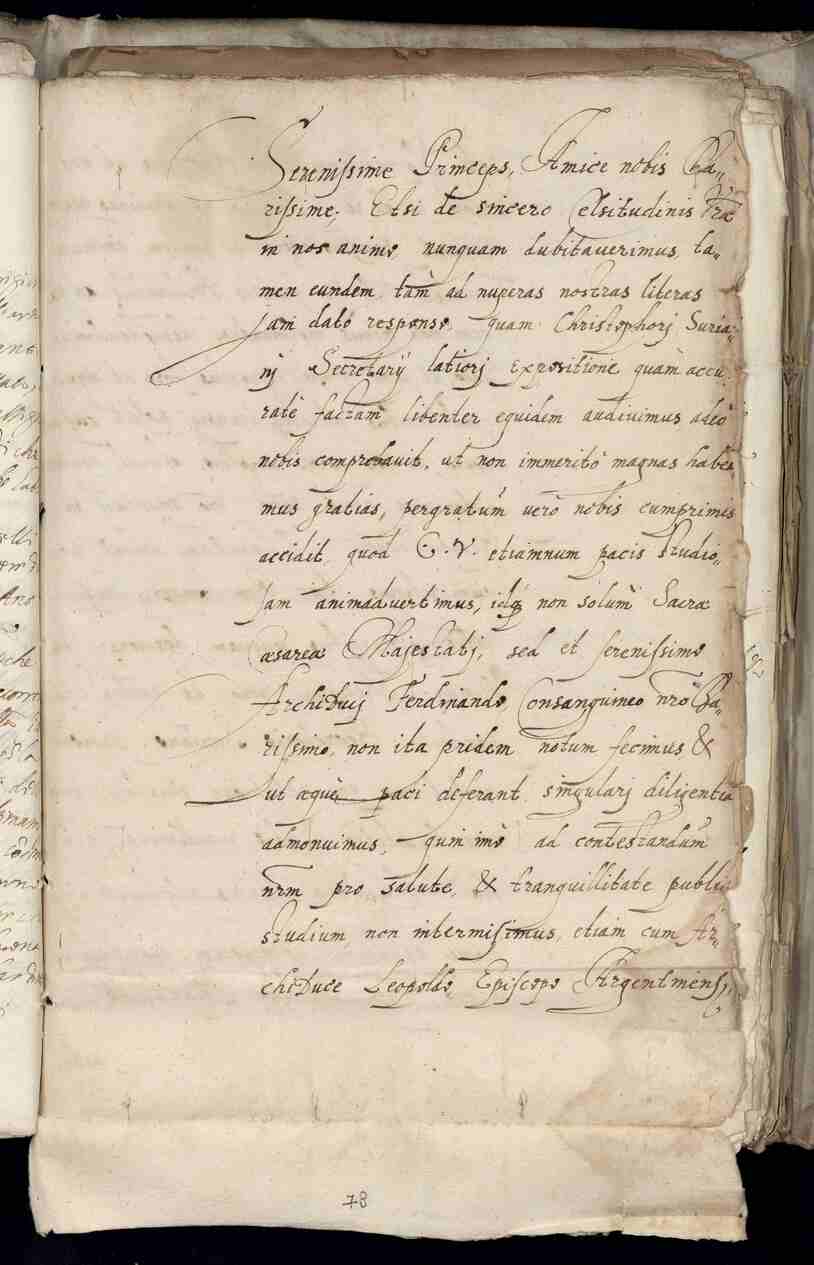 Serenissime Princeps, Amice nobis Cha=
rissime, Etsi de sincero Celsitudinis Vrae
in nos animo nunquam dubitaverimus, ta=
men eundem tam ad nuperas nostras literas
jam dato responso, quam Christophorj Suria=
nj Secretarij latiorj expositione quàm accu=
ratè factam libenter equidem audivimus adeò
nobis comprobavit, ut non immeritò magnas habea
mus gratias, pergratum verò nobis cumprimis
accidit, quod C. V. etiamnum pacis studio=
sam animadvertimus, idq; non solum Sacrae
Caesareae Majestatj, sed et serenissimo
Archiducj Ferdinando, Consanguineo nro Cha=
rissimo, non ita pridem notum fecimus &
ut aequè paci deferant singularj diligentia
admonuimus, quin imò ad contestandum
nrm pro salute, & tranquillitate publica
studium, non intermisimus, etiam cum Ar=
chiduce Leopoldo, Episcopo Argentinensj,
78